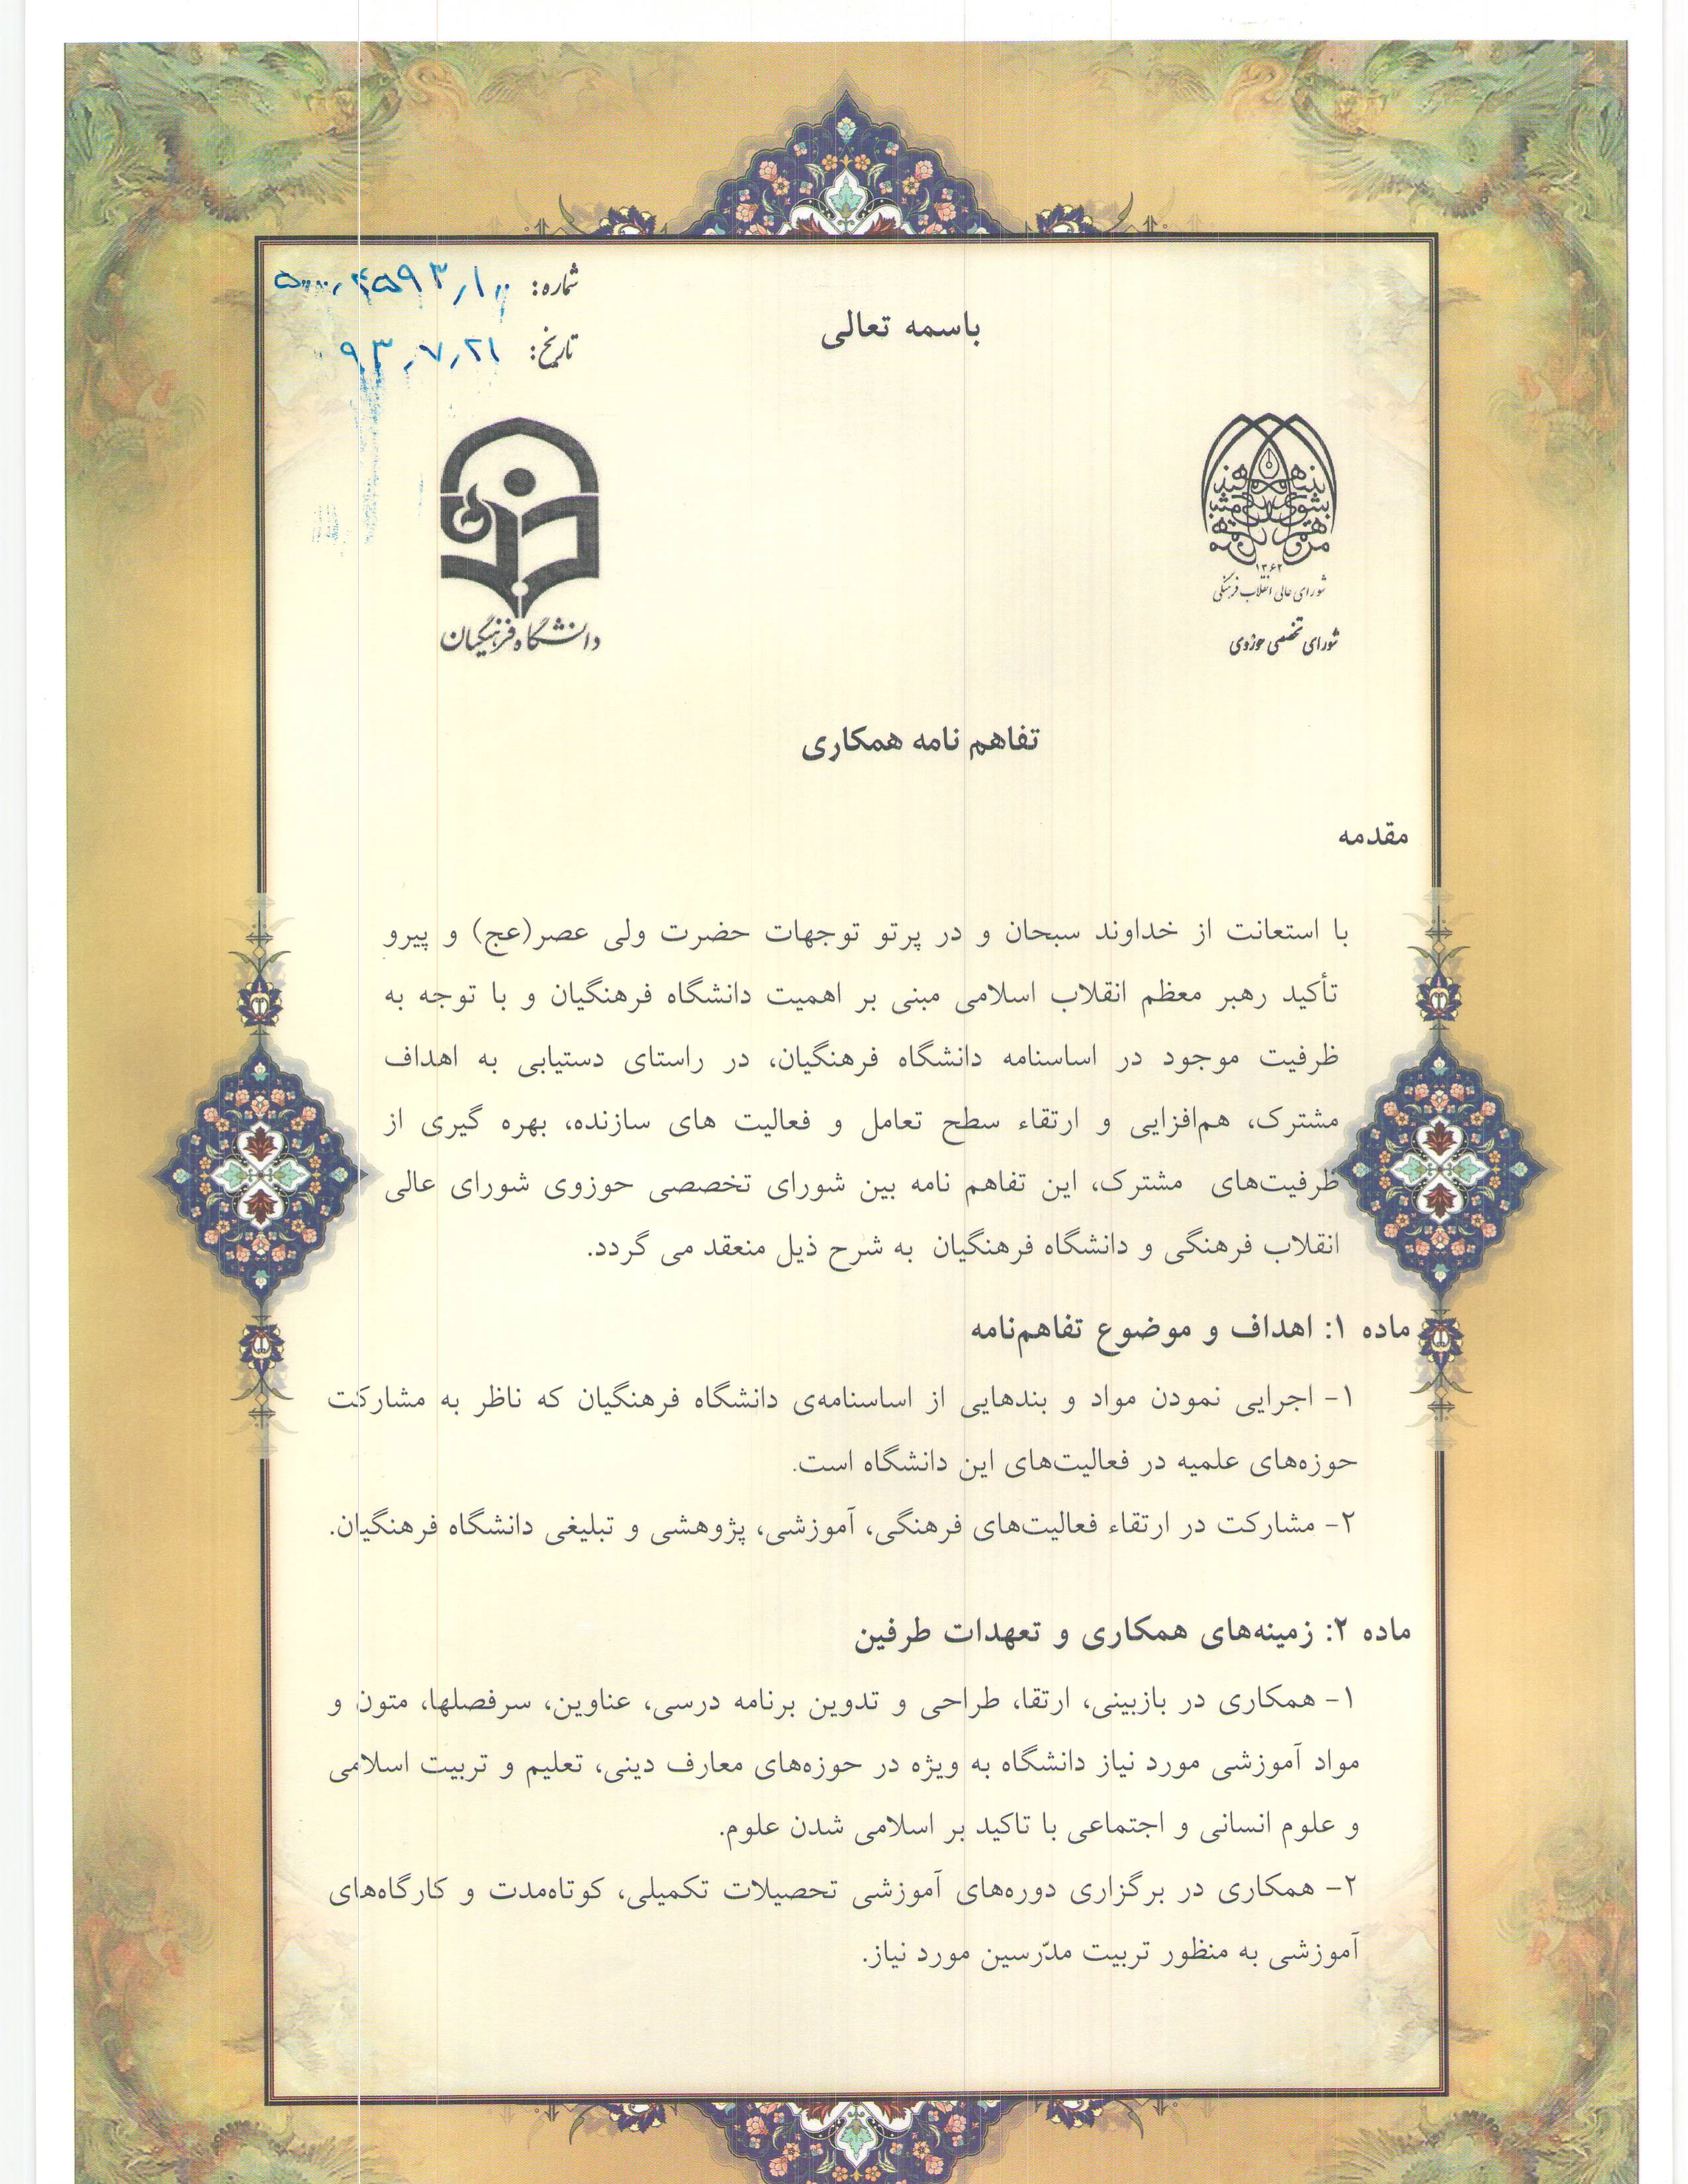 باسمه تعالی
شماره: ۵۰۰۰۰٫۴۵۹۳٫۱۰۰
تاریخ: ۹۳٫۷٫۲۱
۱۳۶۳
شورای عالی انقلاب فرهنگی
شورای تخصصی حوزوی
دانشگاه فرهنگیان
تفاهم نامه همکاری
مقدمه
با استعانت از خداوند سبحان و در پرتو توجهات حضرت ولی عصر(عج) و پیرو
تأکید رهبر معظم انقلاب اسلامی مبنی بر اهمیت دانشگاه فرهنگیان و با توجه به
ظرفیت موجود در اساسنامه دانشگاه فرهنگیان، در راستای دستیابی به اهداف
مشترک، هم‌افزایی و ارتقاء سطح تعامل و فعالیت های سازنده، بهره گیری از
ظرفیت‌های مشترک، این تفاهم نامه بین شورای تخصصی حوزوی شورای عالی
انقلاب فرهنگی و دانشگاه فرهنگیان به شرح ذیل منعقد می گردد.
ماده ۱: اهداف و موضوع تفاهم‌نامه
۱- اجرایی نمودن مواد و بندهایی از اساسنامه‌ی دانشگاه فرهنگیان که ناظر به مشارکت
حوزه‌های علمیه در فعالیت‌های این دانشگاه است.
۲- مشارکت در ارتقاء فعالیت‌های فرهنگی، آموزشی، پژوهشی و تبلیغی دانشگاه فرهنگیان.
ماده ۲: زمینه‌های همکاری و تعهدات طرفین
۱- همکاری در بازبینی، ارتقا، طراحی و تدوین برنامه درسی، عناوین، سرفصلها، متون و
مواد آموزشی مورد نیاز دانشگاه به ویژه در حوزه‌های معارف دینی، تعلیم و تربیت اسلامی
و علوم انسانی و اجتماعی با تاکید بر اسلامی شدن علوم.
۲- همکاری در برگزاری دوره‌های آموزشی تحصیلات تکمیلی، کوتاه‌مدت و کارگاه‌های
آموزشی به منظور تربیت مدّرسین مورد نیاز.